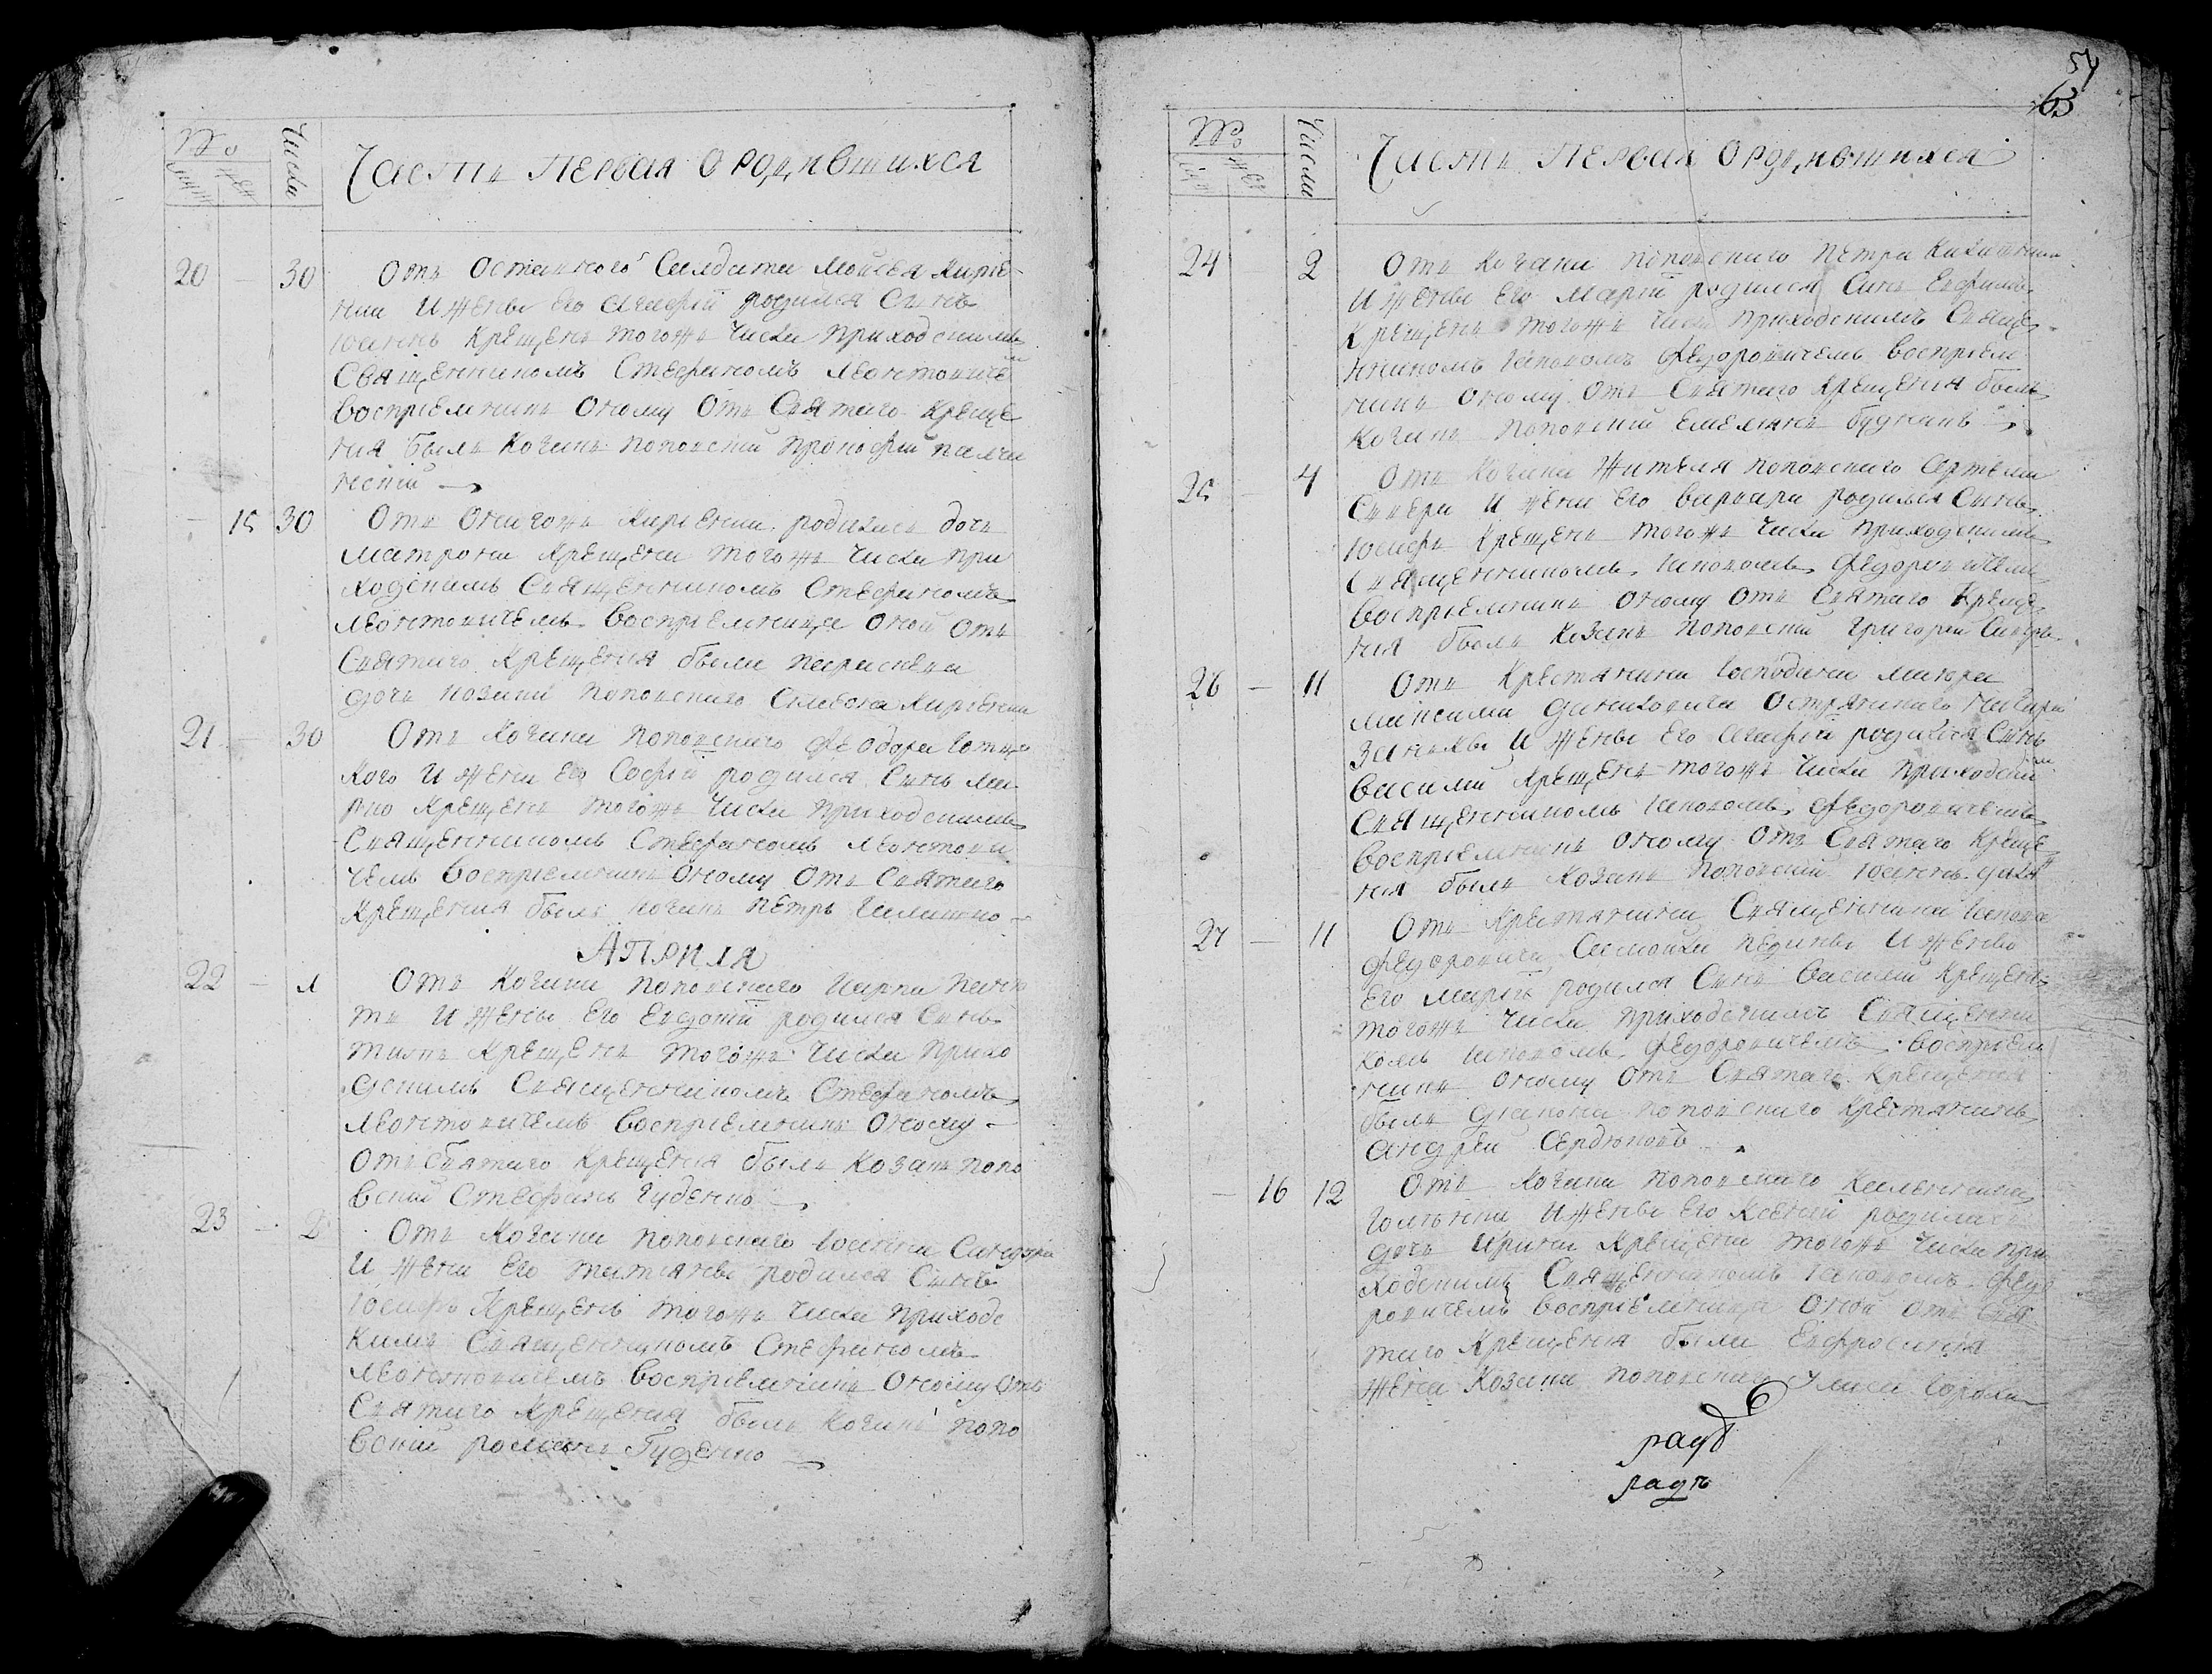 №
Числа
Часть Первая о родившихся
20 30 Отъ Отставного Салдата Мойсея Кирие
нка и жены Его Агафіи родился Сынъ
Іоаннъ Крещенъ того жъ Числа приходскимъ
Священникомъ Стефаномъ Леонтовиче
Воспріемникъ Оному Отъ Святаго Креще
нія былъ Козакъ поповскій Прокофій
15 30 Отъ Оногожъ Кириенка родилась дочь
Матрона Крещена того жъ Числа При
ходскимъ Священникомъ Стефаномъ
Леонтовичемъ Воспріемница Оной Отъ
Святаго Крещенія была Параскева
дочь козака поповского Симеона Кириенка
21 30 Отъ Козака поповского Феодора
кого и жены Его Софіи родился Сынъ Ма
рко Крещенъ того жъ Числа приходскимъ
Священникомъ Стефаномъ Леонтови
чемъ Воспріемникъ Оному Отъ Святаго
Крещенія былъ Козакъ Петръ
Априля
22 Отъ Козака поповского Карпа
и жены Его Евдокіи родился Сынъ
Крещенъ того жъ Числа прихо
дскимъ Священникомъ Стефаномъ
Леонтовичемъ Воспріемникъ Оному
Отъ Святаго Крещенія былъ Козакъ попо
вский Стефанъ Гуденко
23 2 Отъ Козака поповского Іоанна
и жены Его Татіаны родился Сынъ
Іосифъ Крещенъ того жъ Числа приходс
кимъ Священникомъ Стефаномъ
Леонтовичемъ Воспріемникъ Оному Отъ
Святаго Крещенія былъ Козакъ попо
вский романъ Гуденко
54
63
№
Числа
Часть Первая о родившихся
24 2 Отъ Козака поповского Петра
и жены Его Маріи родился Сынъ Ефимъ
Крещенъ того жъ Числа приходскимъ Свяще
нникомъ Іаковомъ Федоровичемъ Воспріем
никъ Оному Отъ Святаго Крещенія былъ
Козакъ поповский Емельянъ
25 4 Отъ Козака жителя поповского
и жены Его Варвары родился Сынъ
Іосифъ Крещенъ того жъ Числа приходскимъ
Священникомъ Іаковомъ Федоровичемъ
Воспріемникъ Оному Отъ Святаго Креще
нія былъ Козакъ поповский Григорий
26 11 Отъ Крестянина Господина Маиора
Максима Даниловича Остранского
и жены Его Агафіи родился Сынъ
Василий Крещенъ того жъ Числа приходским
Священникомъ Іаковомъ Федоровичемъ
Воспріемникъ Оному Отъ Святаго Креще
нія былъ Козакъ поповский Іоаннъ
27 11 Отъ Крестянина Священника Іакова
Федоровича Самойла и жены
Его Маріи родился Сынъ Василий Крещенъ
того жъ Числа приходскимъ Священни
комъ Іаковомъ Федоровичемъ Воспріем
никъ Оному Отъ Святаго Крещенія
былъ диакона поповского Крестянинъ
Андрей Сердюковъ
16 12 Отъ Козака поповского
и жены Его Ксеніи родилась
дочь Ирина Крещена того жъ Числа при
ходскимъ Священникомъ Іаковомъ Федо
ровичемъ Воспріемница Оной Отъ Свя
таго Крещенія была Евфросинія
жена Козака поповского
радъ